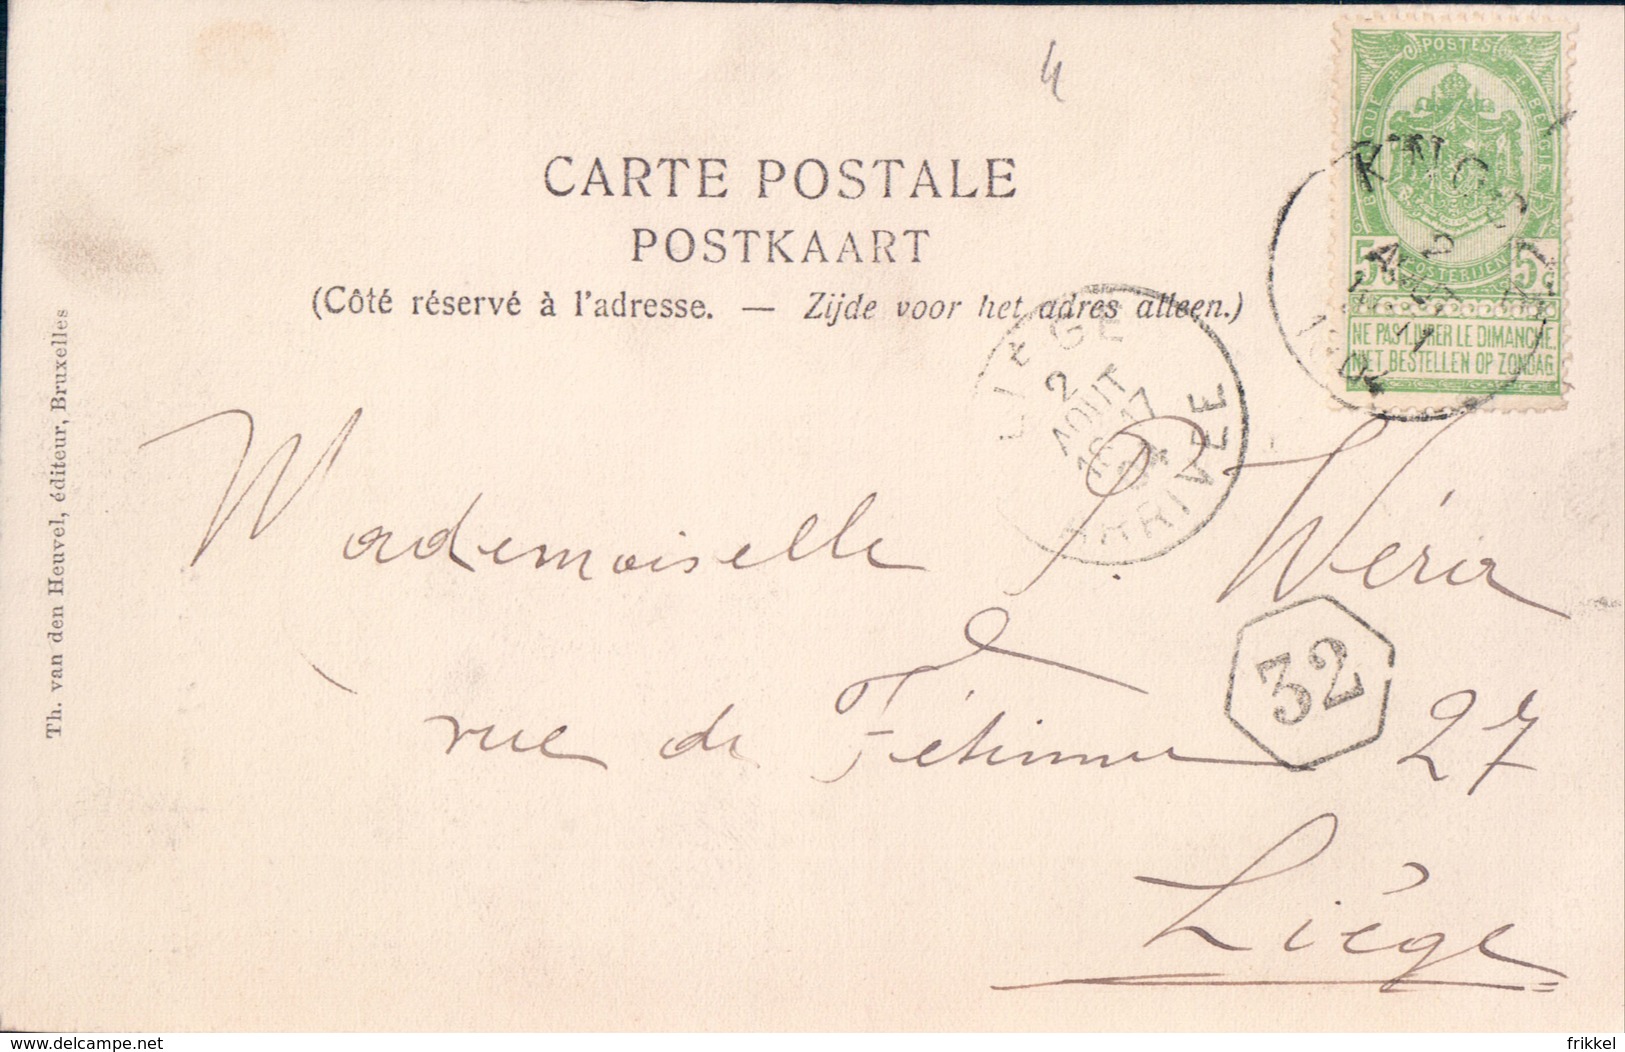 4
POSTES
BELGIQUE
BELGIË
5c
POSTERIJEN
5c
NE PAS LIVRER LE DIMANCHE.
NIET BESTELLEN OP ZONDAG.
2
AOUT
11
CARTE POSTALE
POSTKAART
(Côté réservé à l'adresse. — Zijde voor het adres alleen.)
LIÈGE
2
AOUT
17
ARRIVEE
Mademoiselle J. Wéria
32
rue de Fétinne 27
Liège
Th. van den Heuvel, éditeur, Bruxelles
www.delcampe.net
frikkel